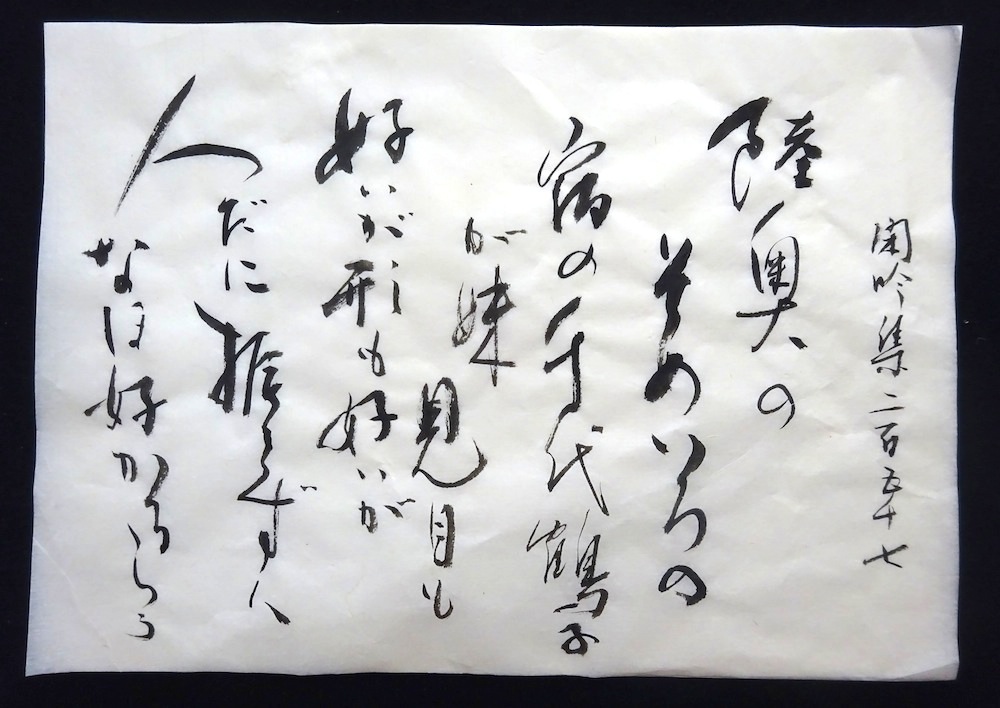 閑吟集二百五十七
陸奥の
そめいろの
宿の千代鶴子
が妹
見目も
好いが形も好いが
人だに振らずは
なほ好かるらう